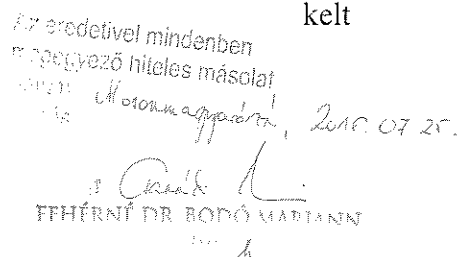 kelt
Az eredetivel mindenben
megegyező hiteles másolat
Mosonmagyaróvár, 2016. 07. 25.
FEHÉRNÉ DR. BODÓ MARIANN